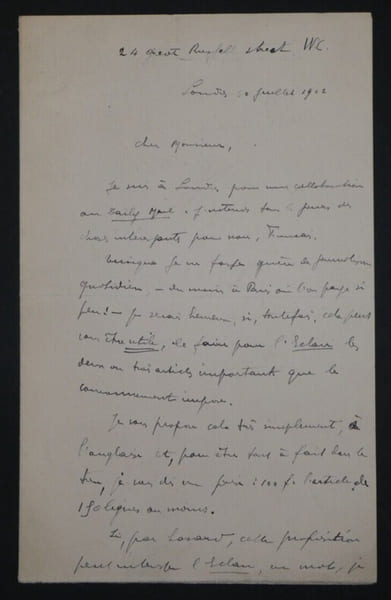 24 Great Russell street W.C.
Londres 20 juillet 1902
Cher Monsieur,
Je suis à Londres pour une collaboration
au Daily Mail. J'entends tous les jours des
choses intéressantes pour nous, Français.
Quoique je ne fasse guère de journalisme
quotidien, – du moins à Paris où l'on paye si
peu! – je serais heureux, si, toutefois, cela peut
vous être utile, de faire pour l'Eclair les
deux ou trois articles importants que le
couronnement impose.
Je vous propose cela très simplement, à
l'anglaise et, pour être tout à fait dans le
ton, je vous dis un prix : 100 f. l'article de
150 lignes au moins.
Si, par hasard, cette proposition
peut intéresser l'Eclair, un mot, je